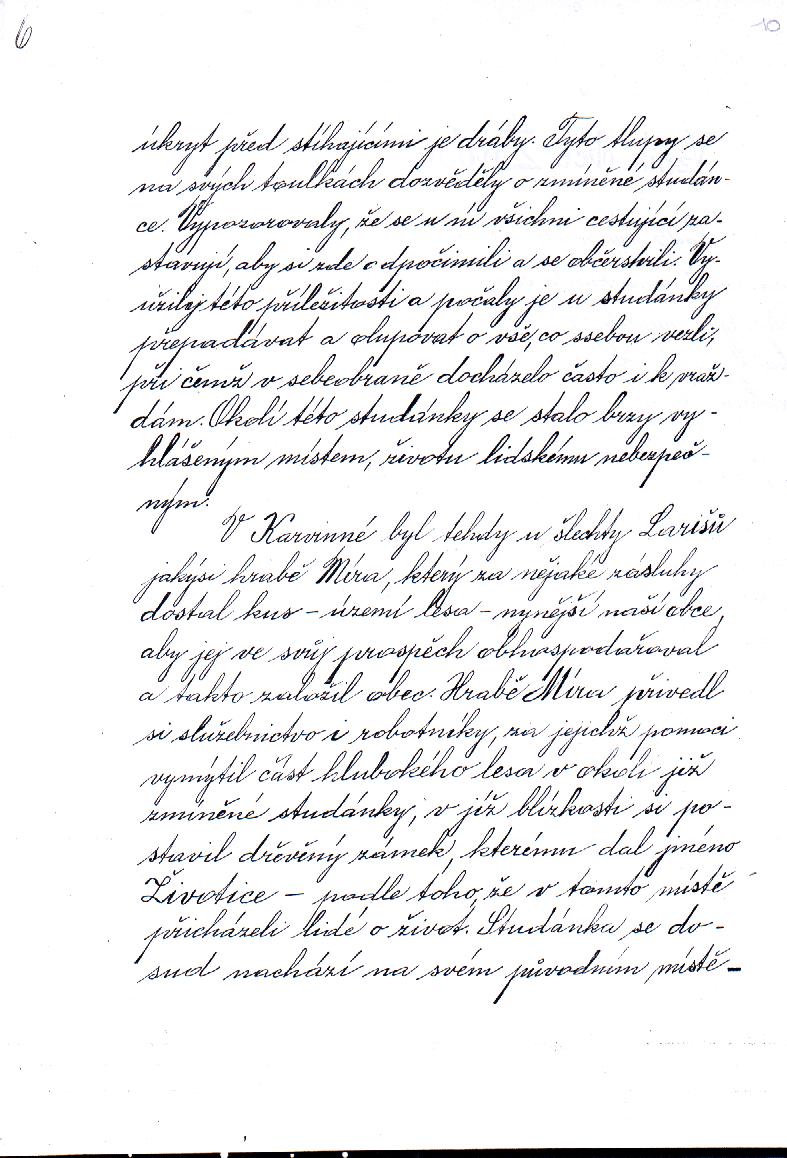 6
10
úkryt před stíhajícími je dráby. Tyto tlupy se
na svých toulkách dozvěděly o zmíněné studán-
ce. Vypozorovaly, že se u ní všichni cestující za-
stavují, aby si zde odpočinili a se občerstvili. Vy-
užily této příležitosti a počaly je u studánky
přepadávat a olupovat o vše, co ssebou vezli,
při čemž v sebeobraně docházelo často i k vraž-
dám. Okolí této studánky se stalo brzy vy-
hlášeným místem, životu lidskému nebezpeč-
ným.
V Karvinné byl tehdy u šlechty Larišů
jakýsi hrabě Míra, který za nějaké zásluhy
dostal kus - území lesa - nynější naší obce,
aby jej ve svůj prospěch obhospodařoval
a takto založil obec. Hrabě Míra přivedl
si služebnictvo i robotníky, za jejichž pomoci
vymýtil část hlubokého lesa v okolí již
zmíněné studánky, v již blízkosti si po-
stavil dřevěný zámek, kterému dal jméno
Životice - podle toho, že v tomto místě
přicházeli lidé o život. Studánka se do-
sud nachází na svém původním místě -